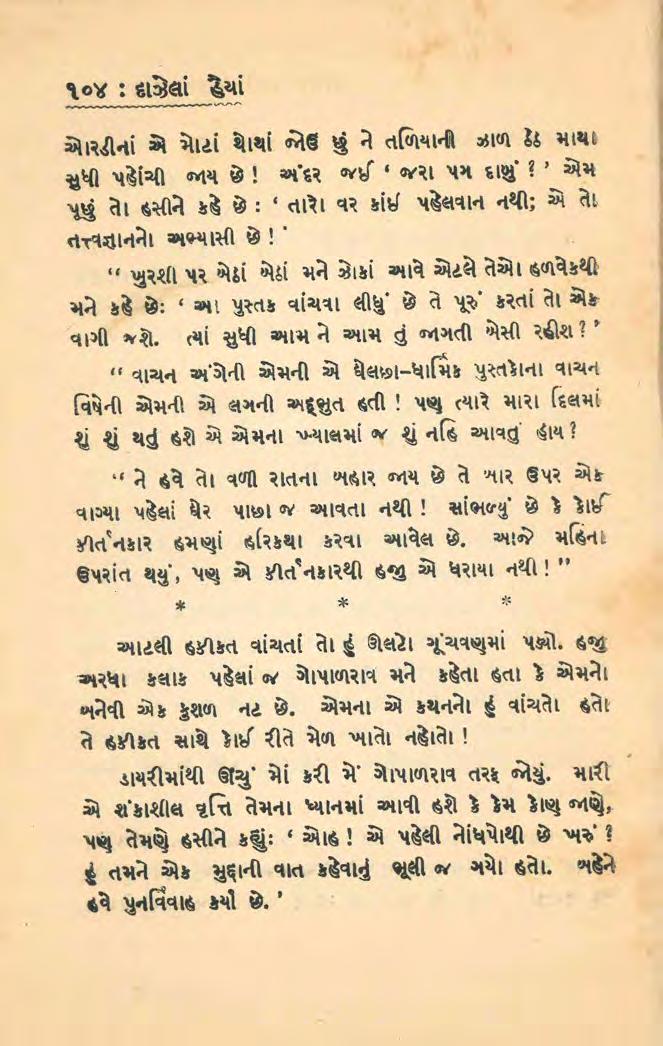 ૧૦૪ : દાઝેલાં હૈયાં
ઓરડીનાં એ મોટાં થોથાં જોઉં છું ને તળિયાની ઝાળ ઠેઠ માથા
સુધી પહોંચી જાય છે! અંદર જઈ ‘ જરા પગ દાબું ? ’ એમ
પૂછું તો હસીને કહે છે : ‘ તારો વર કાંઈ પહેલવાન નથી; એ તો
તત્ત્વજ્ઞાનનો અભ્યાસી છે ! ’
“ ખુરશી પર બેઠાં બેઠાં મને ઝોકાં આવે એટલે તેઓ હળવેકથી
મને કહે છેઃ ‘ આ પુસ્તક વાંચવા લીધું છે તે પૂરું કરતાં તો એક
વાગી જશે. ત્યાં સુધી આમ ને આમ તું જાગતી બેસી રહીશ ? ’
“ વાચન અંગેની એમની એ ઘેલછા–ધાર્મિક પુસ્તકોના વાચન
વિષેની એમની એ લગની અદ્દભુત હતી ! પણ ત્યારે મારા દિલમાં
શું શું થતું હશે એ એમના ખ્યાલમાં જ શું નહિ આવતું હોય ?
“ ને હવે તો વળી રાતના બહાર જાય છે તે બાર ઉપર એક
વાગ્યા પહેલાં ઘેર પાછા જ આવતા નથી ! સાંભળ્યું છે કે કોઈ
કીર્તનકાર હમણાં હરિકથા કરવા આવેલ છે. આજે મહિના
ઉપરાંત થયું, પણ એ કીર્તનકારથી હજી એ ધરાયા નથી ! ”
* * *
આટલી હકીકત વાંચતાં તો હું ઊલટો ગૂંચવણમાં પડ્યો. હજી
અરધા કલાક પહેલાં જ ગોપાળરાવ મને કહેતા હતા કે એમનો
બનેવી એક કુશળ નટ છે. એમના એ કથનનો હું વાંચતો હતો
તે હકીકત સાથે કોઈ રીતે મેળ ખાતો નહોતો !
ડાયરીમાંથી ઊંચું મોં કરી મેં ગોપાળરાવ તરફ જોયું. મારી
એ શંકાશીલ વૃત્તિ તેમના ધ્યાનમાં આવી હશે કે કેમ કોણ જાણે,
પણ તેમણે હસીને કહ્યુંઃ ‘ ઓહ ! એ પહેલી નોંધપોથી છે ખરું ?
હું તમને એક મુદ્દાની વાત કહેવાનું ભૂલી જ ગયો હતો. બહેને
હવે પુનર્વિવાહ કર્યો છે. ’